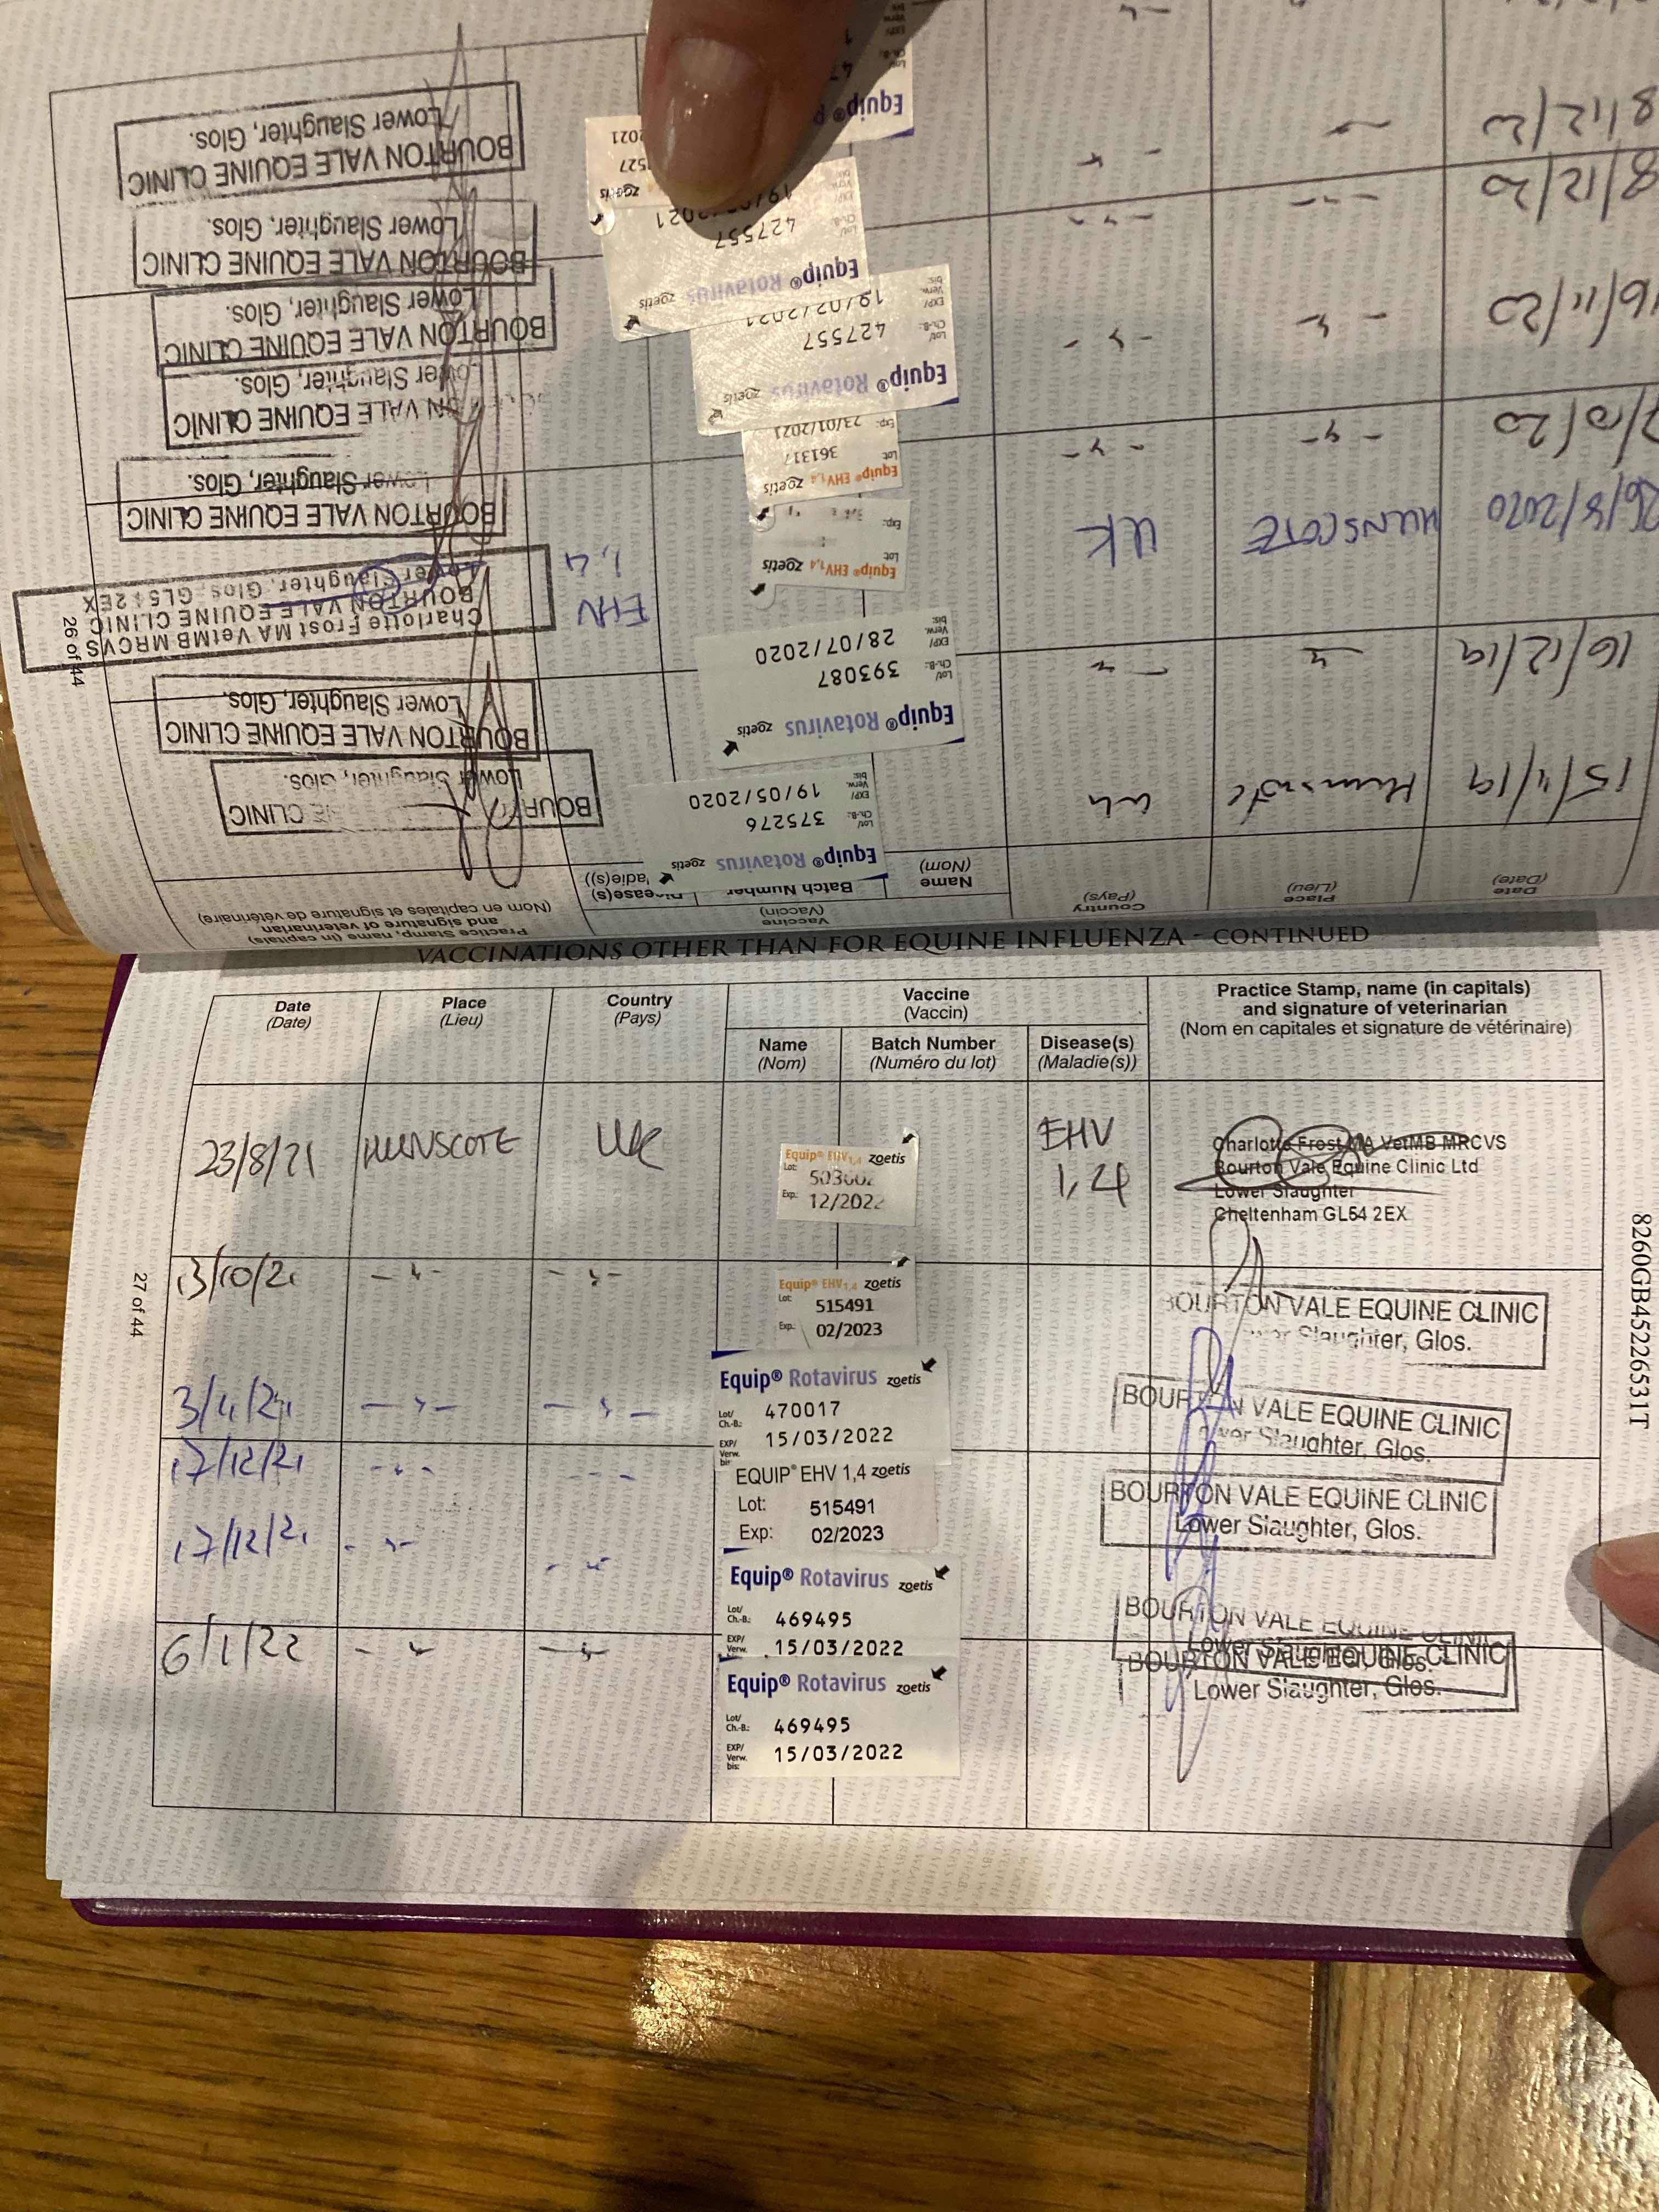 VACCINATIONS OTHER THAN FOR EQUINE INFLUENZA - CONTINUED
Date
(Date)
Place
(Lieu)
Country
(Pays)
Vaccine
(Vaccin)
Name
(Nom)
Batch Number
(Numéro du lot)
Disease(s)
(Maladie(s))
Practice Stamp, name (in capitals)
and signature of veterinarian
(Nom en capitales et signature de vétérinaire)
23/8/21 HUNSCOTE UK
Equip® EHV1,4 zoetis
Lot:
Exp: 12/2022
EHV
1,4
Charlotte Frost MA VetMB MRCVS
Bourton Vale Equine Clinic Ltd
Lower Slaughter
Cheltenham GL54 2EX
13/10/21
Equip® EHV1,4 zoetis
Lot: 515491
Exp: 02/2023
BOURTON VALE EQUINE CLINIC
Lower Slaughter, Glos.
Equip® Rotavirus zoetis
Lot/
Ch.-B.: 470017
EXP/
Verw.
bis: 15/03/2022
BOURTON VALE EQUINE CLINIC
Lower Slaughter, Glos.
17/12/21
EQUIP® EHV 1,4 zoetis
Lot: 515491
Exp: 02/2023
BOURTON VALE EQUINE CLINIC
Lower Slaughter, Glos.
17/12/21
Equip® Rotavirus zoetis
Lot/
Ch.-B.: 469495
EXP/
Verw. 15/03/2022
BOURTON VALE EQUINE CLINIC
Lower Slaughter, Glos.
6/1/22
Equip® Rotavirus zoetis
Lot/
Ch.-B.: 469495
EXP/
Verw.
bis: 15/03/2022
BOURTON VALE EQUINE CLINIC
Lower Slaughter, Glos.
27 of 44
8260GB45226531T
Date
(Date)
Place
(Lieu)
Country
(Pays)
Vaccine
(Vaccin)
Name
(Nom)
Batch Number
Practice Stamp, name (in capitals)
and signature of veterinarian
(Nom en capitales et signature de vétérinaire)
Equip® Rotavirus zoetis
Lot/
Ch.-B.: 375276
EXP/
Verw.
bis: 19/05/2020
16/12/19
Equip® Rotavirus zoetis
Lot/
Ch.-B.: 393087
EXP/
Verw.
bis: 28/07/2020
BOURTON VALE EQUINE CLINIC
Lower Slaughter, Glos.
HUNSCOTE UK
Equip® EHV1,4 zoetis
Lot
Exp:
EHV
1,4
Charlotte Frost MA VetMB MRCVS
BOURTON VALE EQUINE CLINIC
Lower Slaughter, Glos. GL54 2EX
Equip® EHV1,4 zoetis
Lot 361317
Exp: 23/01/2021
BOURTON VALE EQUINE CLINIC
Lower Slaughter, Glos.
16/11/20
Equip® Rotavirus zoetis
Lot/
Ch.-B.: 427557
EXP/
Verw.
bis: 19/02/2021
VALE EQUINE CLINIC
Lower Slaughter, Glos.
8/12/20
Equip® Rotavirus zoetis
Lot/
Ch.-B.: 427557
BOURTON VALE EQUINE CLINIC
Lower Slaughter, Glos.
8/12/20
zoetis
BOURTON VALE EQUINE CLINIC
Lower Slaughter, Glos.
Equip®
BOURTON VALE EQUINE CLINIC
Lower Slaughter, Glos.
26 of 44